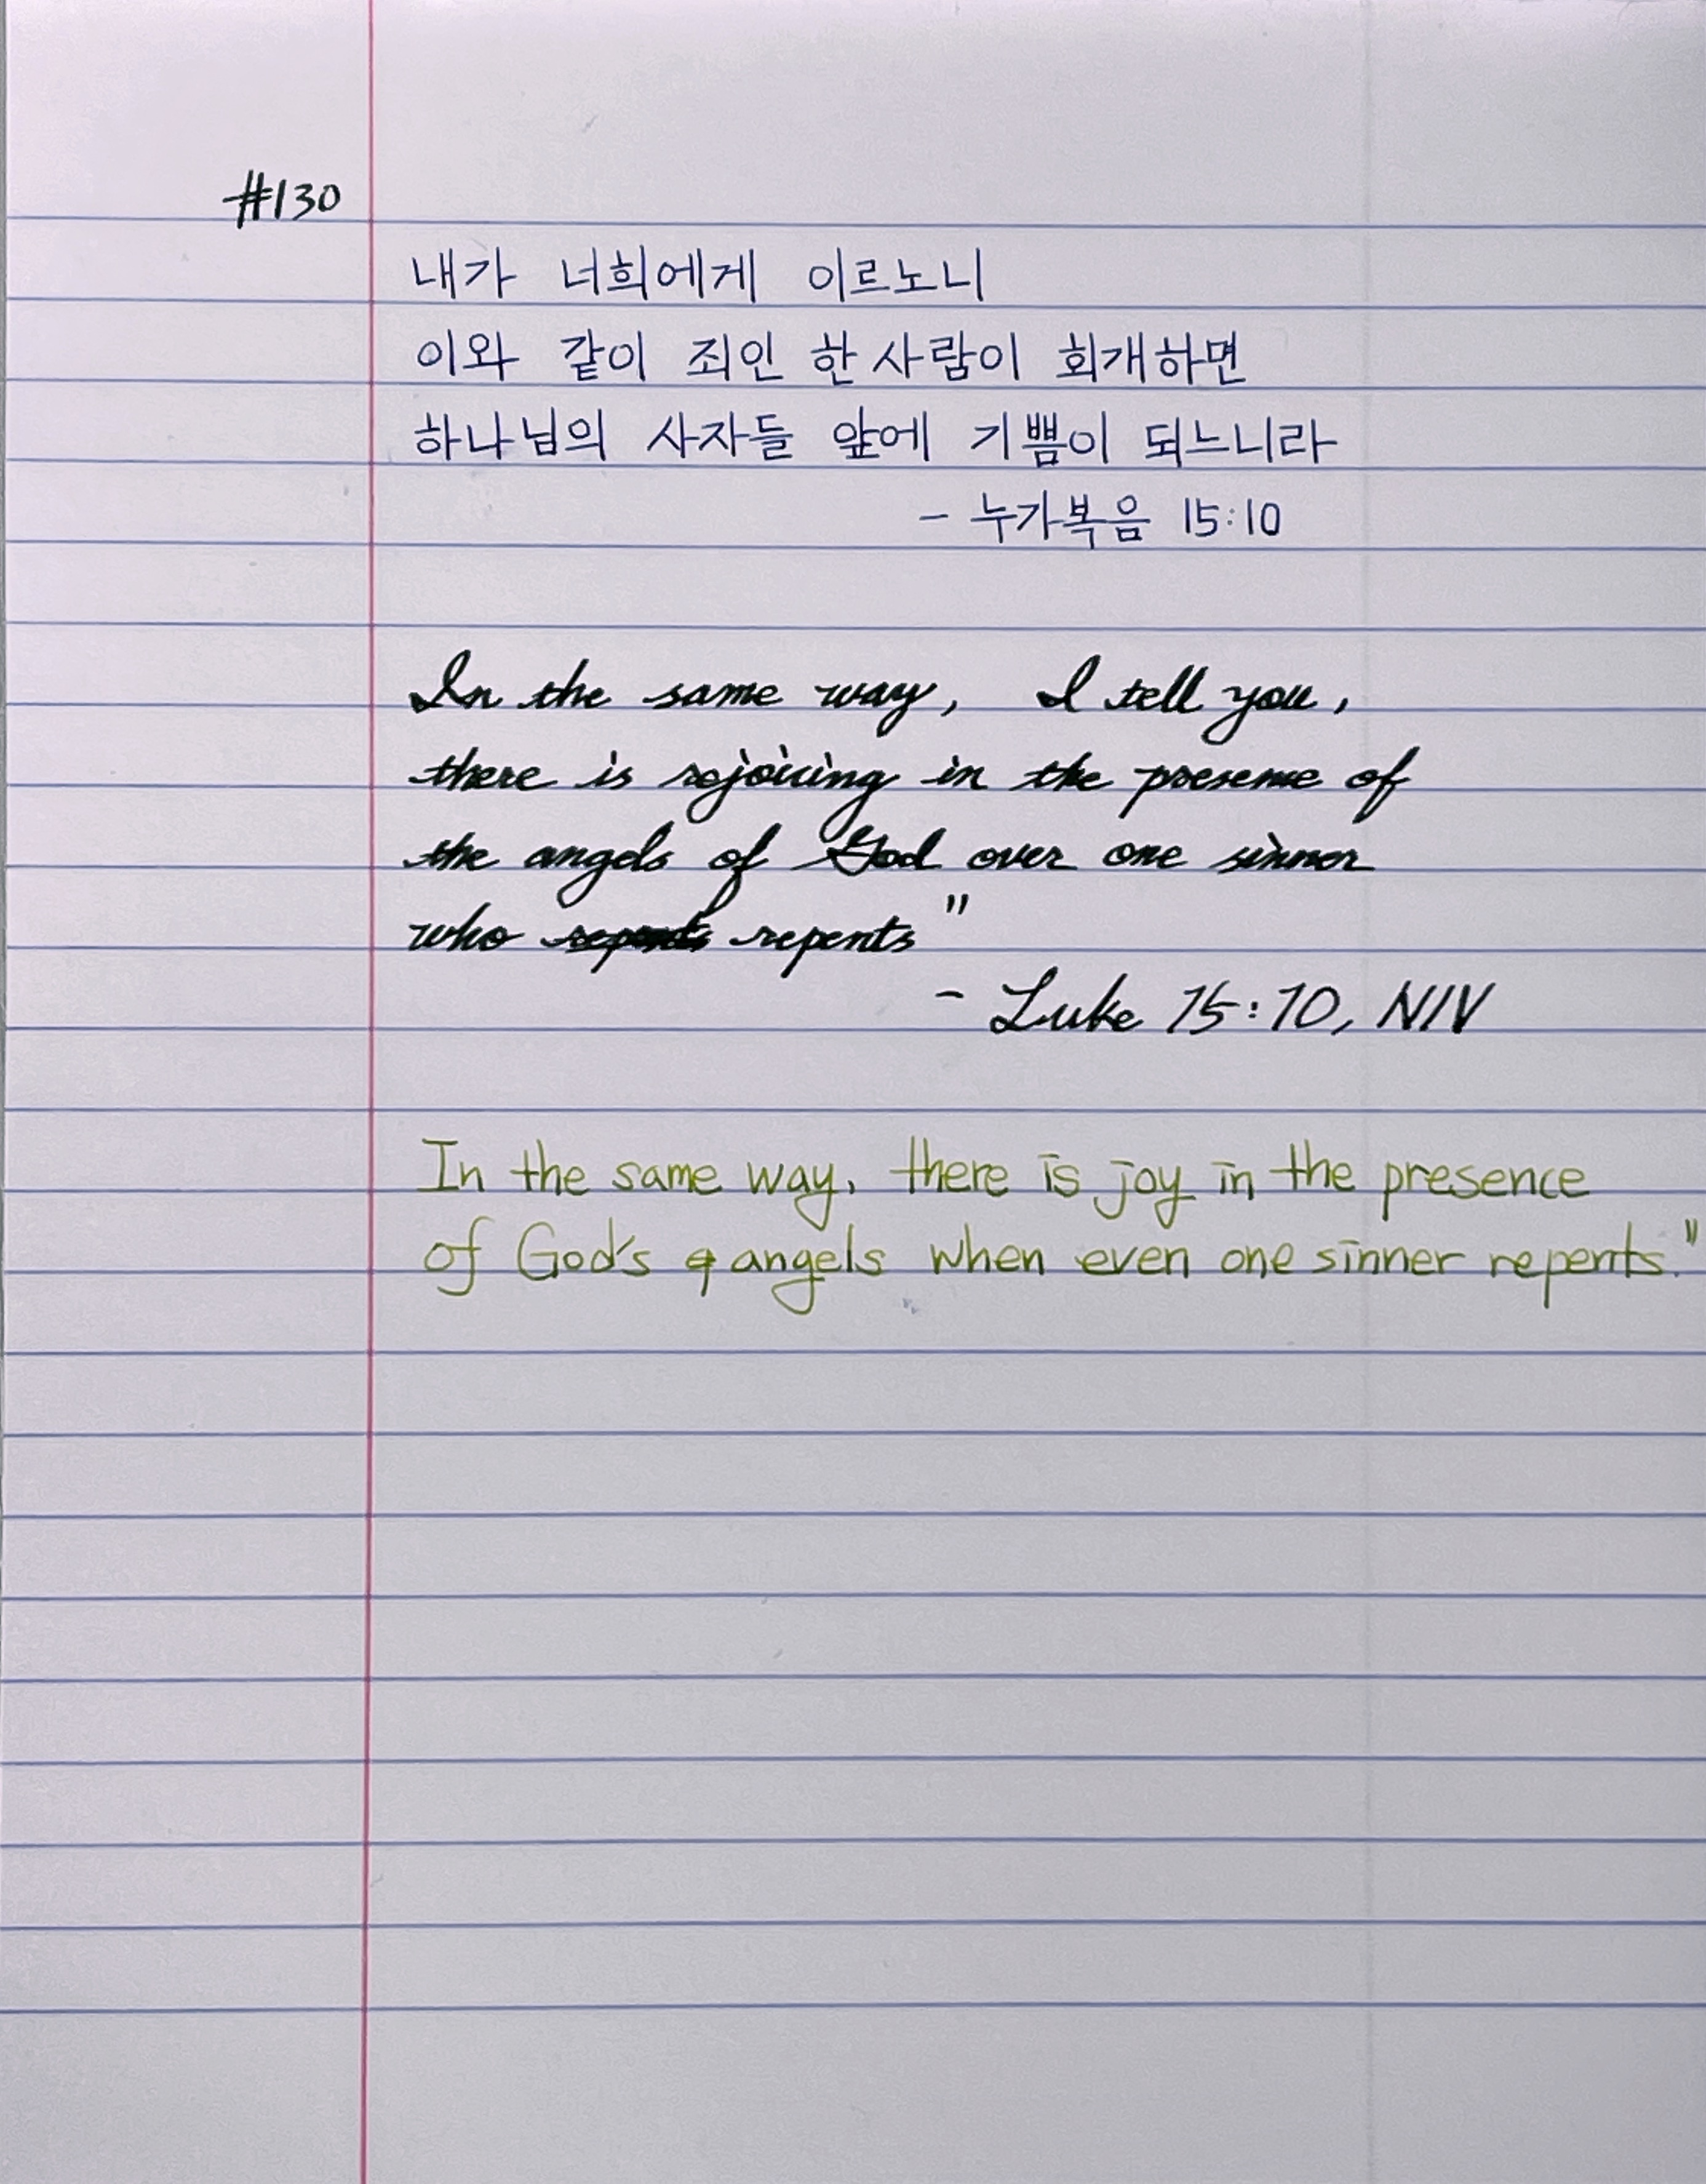 #130
내가 너희에게 이르노니
이와 같이 죄인 한 사람이 회개하면
하나님의 사자들 앞에 기쁨이 되느니라
- 누가복음 15:10
In the same way, I tell you,
there is rejoicing in the presence of
the angels of God over one sinner
who repents repents"
- Luke 15:10, NIV
In the same way, there is joy in the presence
of God's angels when even one sinner repents."